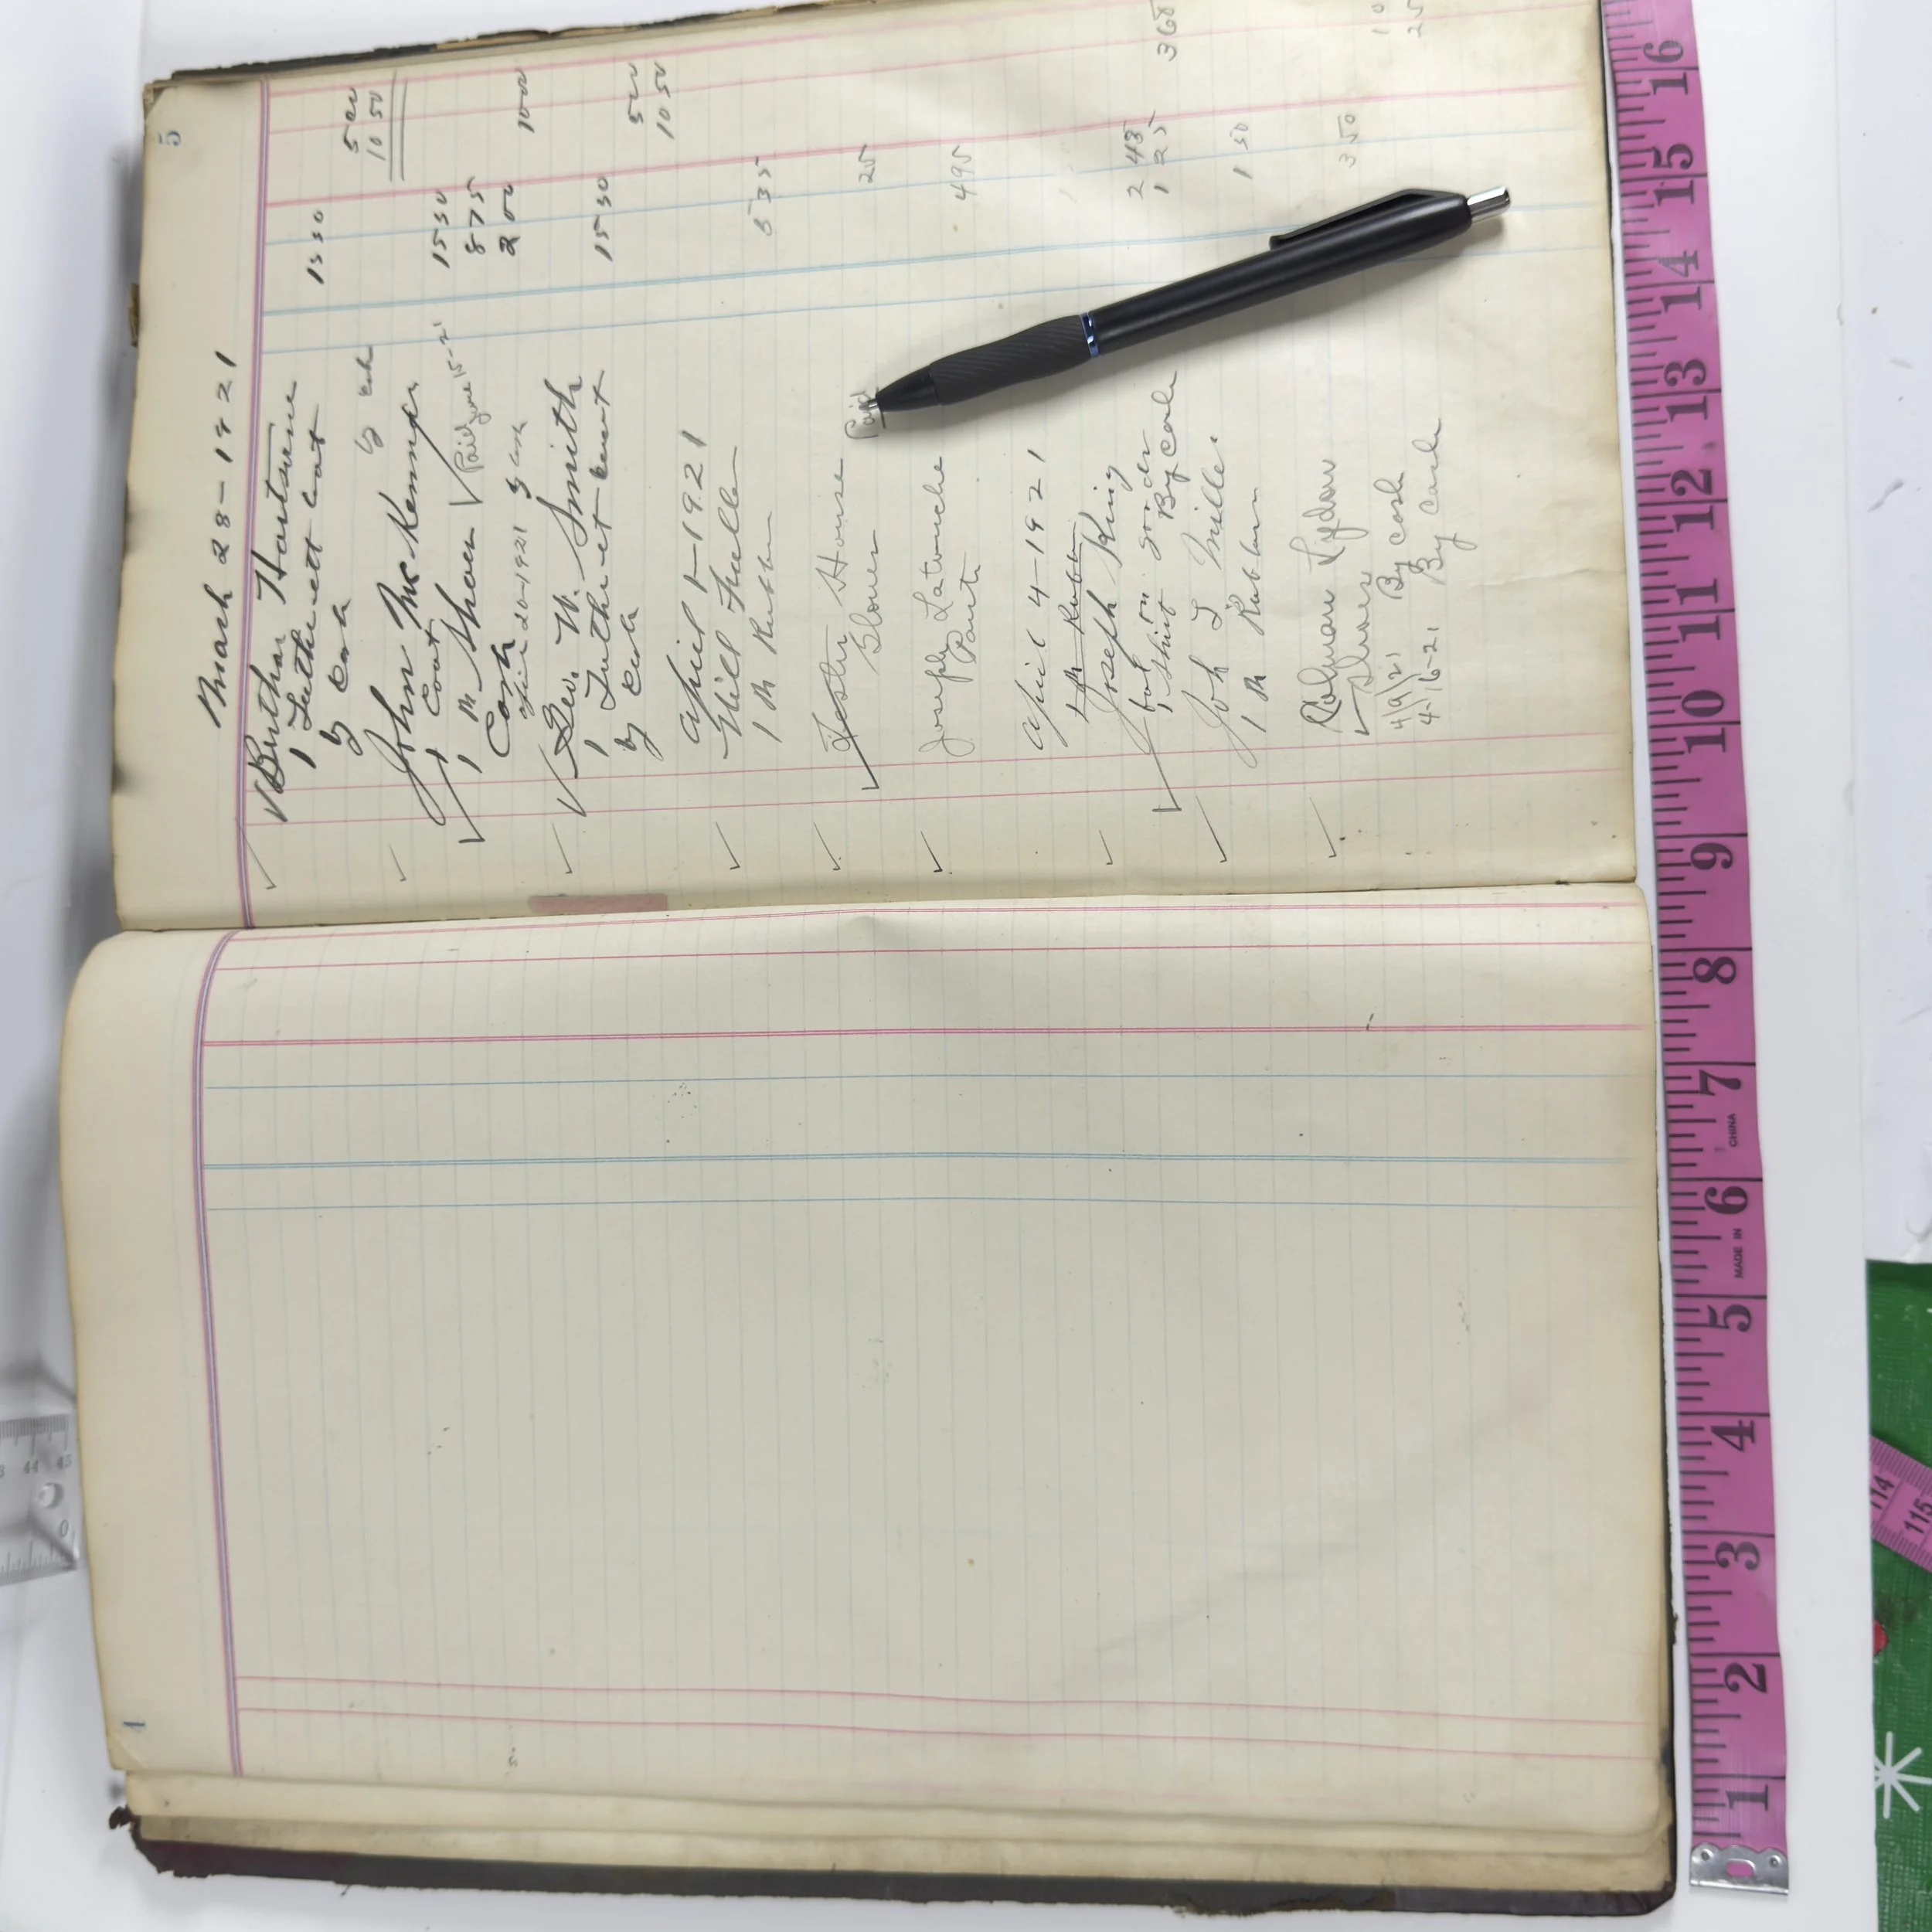 5
March 28-1921
1 Leatherett Coat 15 50
by Cash 5 00
by Cash 10 50
John McKenney
1 Coat 15 50
1 Pr Shoes Paid June 15-21 8 75
Cash 2 00
April 20-1921 by Cash 10 00
Geo. W. Smith
1 Leatherett Coat 15 50
by Cash 5 00
10 50
April 1-1921
Will Fuller
1 Pr Rubber 5 35
Foster House Paid
Gloves 25
Joseph Latouche
Pants 4 95
April 4-1921
1 Pr Rubber
Joseph King
2 48
1 Shirt 1 25
By Cash 3 68
Joh L Miller
1 Pr Rubber 1 50
Lydon
Shoes 3 50
4/9/21 By cash 10
4-16-21 By Cash 25
4
1 2 3 4 5 6 7 8 9 10 11 12 13 14 15 16
MADE IN CHINA
114 115
44 45
0